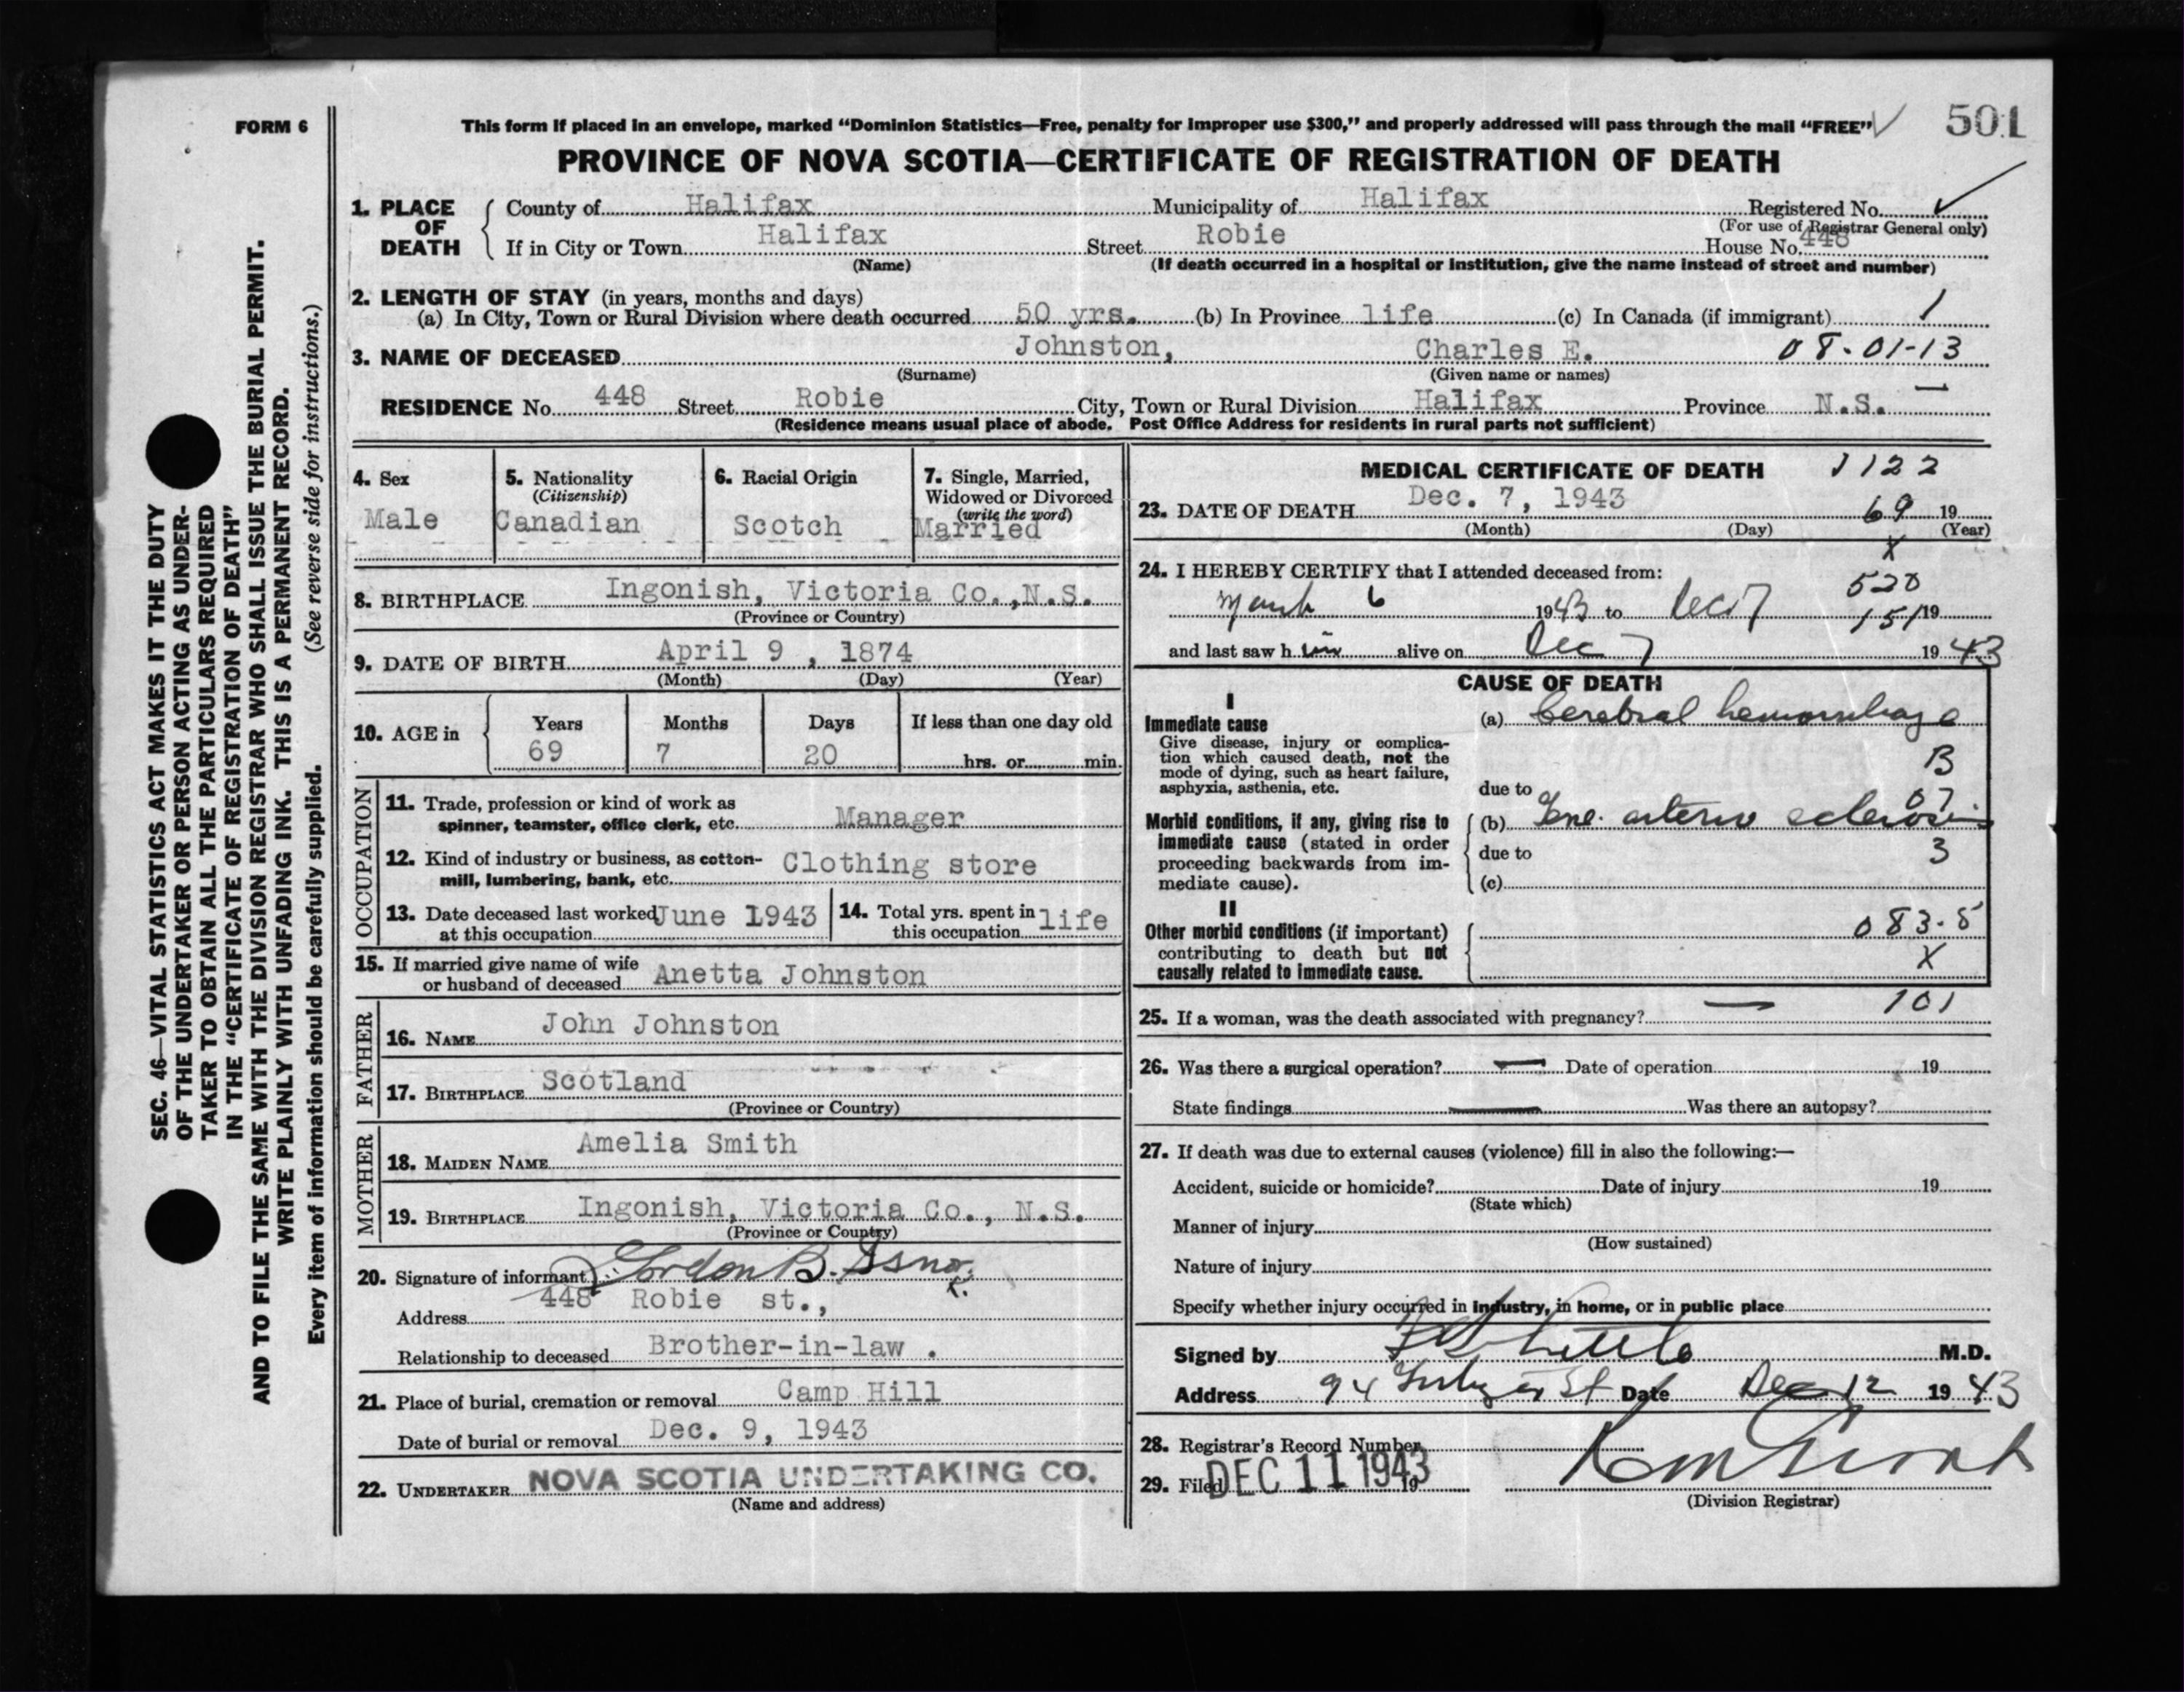 FORM 6
This form if placed in an envelope, marked “Dominion Statistics—Free, penalty for improper use $300,” and properly addressed will pass through the mail “FREE”
501
PROVINCE OF NOVA SCOTIA—CERTIFICATE OF REGISTRATION OF DEATH
1. PLACE OF DEATH
County of Halifax Municipality of Halifax Registered No.
(For use of Registrar General only)
If in City or Town Halifax Street Robie House No. 448
(Name) (If death occurred in a hospital or institution, give the name instead of street and number)
2. LENGTH OF STAY (in years, months and days)
(a) In City, Town or Rural Division where death occurred 50 yrs. (b) In Province life (c) In Canada (if immigrant) 1
3. NAME OF DECEASED Johnston, Charles E. 08-01-13
(Surname) (Given name or names)
RESIDENCE No. 448 Street Robie City, Town or Rural Division Halifax Province N.S.
(Residence means usual place of abode. Post Office Address for residents in rural parts not sufficient)
4. Sex
Male
5. Nationality
(Citizenship)
Canadian
6. Racial Origin
Scotch
7. Single, Married,
Widowed or Divorced
(write the word)
Married
8. BIRTHPLACE Ingonish, Victoria Co., N.S.
(Province or Country)
9. DATE OF BIRTH April 9 , 1874
(Month) (Day) (Year)
10. AGE in Years Months Days If less than one day old
69 7 20 hrs. or min.
OCCUPATION
11. Trade, profession or kind of work as
spinner, teamster, office clerk, etc. Manager
12. Kind of industry or business, as cotton-
mill, lumbering, bank, etc. Clothing store
13. Date deceased last worked June 1943
at this occupation
14. Total yrs. spent in life
this occupation
15. If married give name of wife
or husband of deceased Anetta Johnston
FATHER
16. NAME John Johnston
17. BIRTHPLACE Scotland
(Province or Country)
MOTHER
18. MAIDEN NAME Amelia Smith
19. BIRTHPLACE Ingonish, Victoria Co., N.S.
(Province or Country)
20. Signature of informant Gordon B. Isnor
Address 448 Robie st.,
Relationship to deceased Brother-in-law .
21. Place of burial, cremation or removal Camp Hill
Date of burial or removal Dec. 9, 1943
22. UNDERTAKER NOVA SCOTIA UNDERTAKING CO.
(Name and address)
MEDICAL CERTIFICATE OF DEATH 1122
23. DATE OF DEATH Dec. 7, 1943 69 19
(Month) (Day) (Year)
X
24. I HEREBY CERTIFY that I attended deceased from:
520
March 6 1943 to Dec 7 151 19
and last saw h im alive on Dec 7 19 43
CAUSE OF DEATH
I
Immediate cause
(a) Cerebral hemorrhage
Give disease, injury or complica-
tion which caused death, not the
mode of dying, such as heart failure,
asphyxia, asthenia, etc.
B
due to
07
Morbid conditions, if any, giving rise to
immediate cause (stated in order
proceeding backwards from im-
mediate cause).
(b) Gene. arterio sclerosis
due to
3
(c)
II
Other morbid conditions (if important)
contributing to death but not
causally related to immediate cause.
083.5
X
101
25. If a woman, was the death associated with pregnancy? —
26. Was there a surgical operation? — Date of operation 19
State findings — Was there an autopsy?
27. If death was due to external causes (violence) fill in also the following:—
Accident, suicide or homicide? Date of injury 19
(State which)
Manner of injury
(How sustained)
Nature of injury
Specify whether injury occurred in industry, in home, or in public place
Signed by Little M.D.
Address 94 St Date Dec 12 19 43
28. Registrar's Record Number
29. Filed DEC 11 1943 19
(Division Registrar)
SEC. 46—VITAL STATISTICS ACT MAKES IT THE DUTY
OF THE UNDERTAKER OR PERSON ACTING AS UNDER-
TAKER TO OBTAIN ALL THE PARTICULARS REQUIRED
IN THE “CERTIFICATE OF REGISTRATION OF DEATH”
AND TO FILE THE SAME WITH THE DIVISION REGISTRAR WHO SHALL ISSUE THE BURIAL PERMIT.
WRITE PLAINLY WITH UNFADING INK. THIS IS A PERMANENT RECORD.
Every item of information should be carefully supplied. (See reverse side for instructions.)